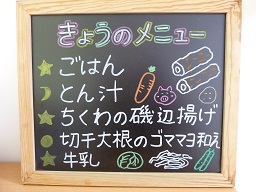 きょうのメニュー
ごはん
とん汁
ちくわの磯辺揚げ
切干大根のゴマママヨ和え
牛乳